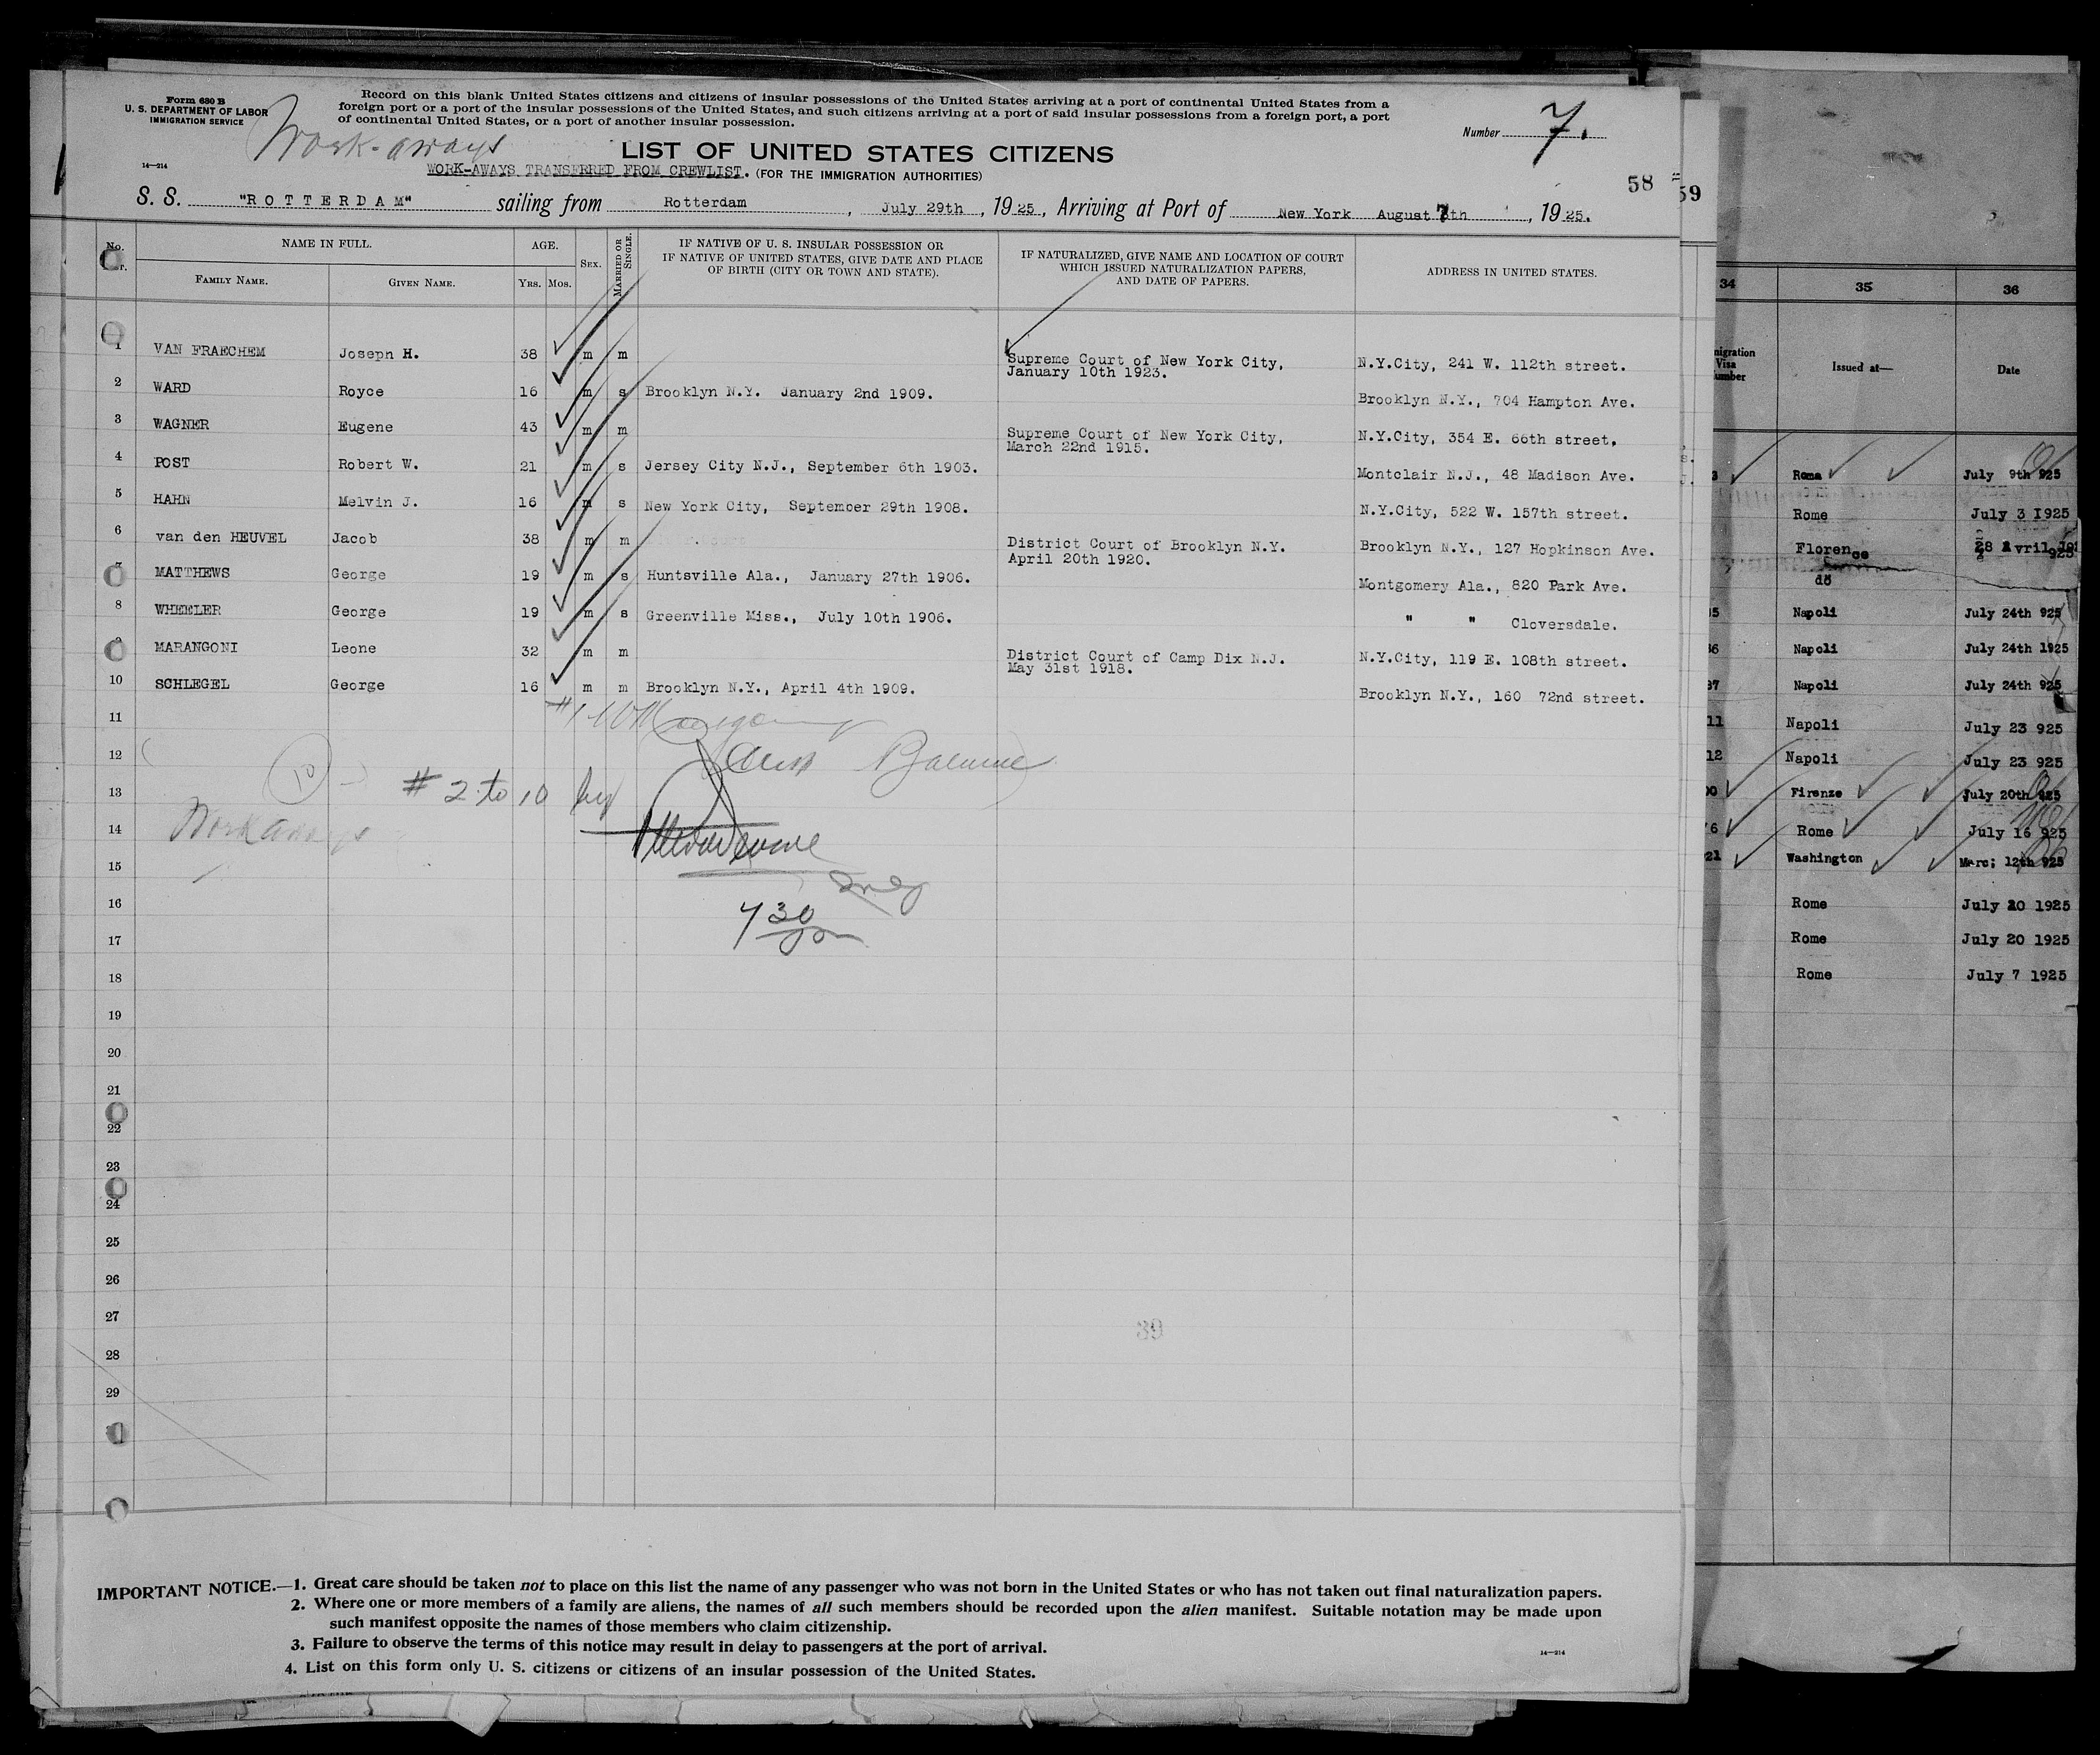 Form 680 B
U. S. DEPARTMENT OF LABOR
IMMIGRATION SERVICE
14—214
Work-aways
Record on this blank United States citizens and citizens of insular possessions of the United States arriving at a port of continental United States from a
foreign port or a port of the insular possessions of the United States, and such citizens arriving at a port of said insular possessions from a foreign port, a port
of continental United States, or a port of another insular possession.
Number 7.
LIST OF UNITED STATES CITIZENS
WORK-AWAYS TRANSFRRED FROM CREWLIST. (FOR THE IMMIGRATION AUTHORITIES)
58
59
S. S. "ROTTERDAM" sailing from Rotterdam, July 29th, 1925, Arriving at Port of New York August 7th, 1925.
No. NAME IN FULL. AGE. SEX. MARRIED OR SINGLE. IF NATIVE OF U. S. INSULAR POSSESSION OR
IF NATIVE OF UNITED STATES, GIVE DATE AND PLACE
OF BIRTH (CITY OR TOWN AND STATE). IF NATURALIZED, GIVE NAME AND LOCATION OF COURT
WHICH ISSUED NATURALIZATION PAPERS,
AND DATE OF PAPERS. ADDRESS IN UNITED STATES.
FAMILY NAME. GIVEN NAME. YRS. MOS.
1 VAN FRAECHEM Joseph H. 38 m m Supreme Court of New York City,
January 10th 1923. N.Y.City, 241 W. 112th street.
2 WARD Royce 16 m s Brooklyn N.Y. January 2nd 1909. Brooklyn N.Y., 704 Hampton Ave.
3 WAGNER Eugene 43 m m Supreme Court of New York City,
March 22nd 1915. N.Y.City, 354 E. 66th street.
4 POST Robert W. 21 m s Jersey City N.J., September 6th 1903. Montclair N.J., 48 Madison Ave.
5 HAHN Melvin J. 16 m s New York City, September 29th 1908. N.Y.City, 522 W. 157th street.
6 van den HEUVEL Jacob 38 m m District Court of Brooklyn N.Y.
April 20th 1920. Brooklyn N.Y., 127 Hopkinson Ave.
7 MATTHEWS George 19 m s Huntsville Ala., January 27th 1906. Montgomery Ala., 820 Park Ave.
8 WHEELER George 19 m s Greenville Miss., July 10th 1906. " " Cloversdale.
9 MARANGONI Leone 32 m m District Court of Camp Dix N.J.
May 31st 1918. N.Y.City, 119 E. 108th street.
10 SCHLEGEL George 16 m m Brooklyn N.Y., April 4th 1909. Brooklyn N.Y., 160 72nd street.
11
12
13
14
15
16
17
18
19
20
21
22
23
24
25
26
27
28
29
10
# 2 to 10 by
Workaways
7 30
39
IMPORTANT NOTICE.—1. Great care should be taken not to place on this list the name of any passenger who was not born in the United States or who has not taken out final naturalization papers.
2. Where one or more members of a family are aliens, the names of all such members should be recorded upon the alien manifest. Suitable notation may be made upon
such manifest opposite the names of those members who claim citizenship.
3. Failure to observe the terms of this notice may result in delay to passengers at the port of arrival.
4. List on this form only U. S. citizens or citizens of an insular possession of the United States.
14—214
34 35 36
Visa Issued at— Date
3 Rome July 9th 925
Rome July 3 1925
Florence 28 Avril
do
35 Napoli July 24th 925
36 Napoli July 24th 1925
37 Napoli July 24th 925
11 Napoli July 23 925
12 Napoli July 23 925
Firenze July 20th 925
6 Rome July 16 925
21 Washington Marc; 12th 925
Rome July 20 1925
Rome July 20 1925
Rome July 7 1925